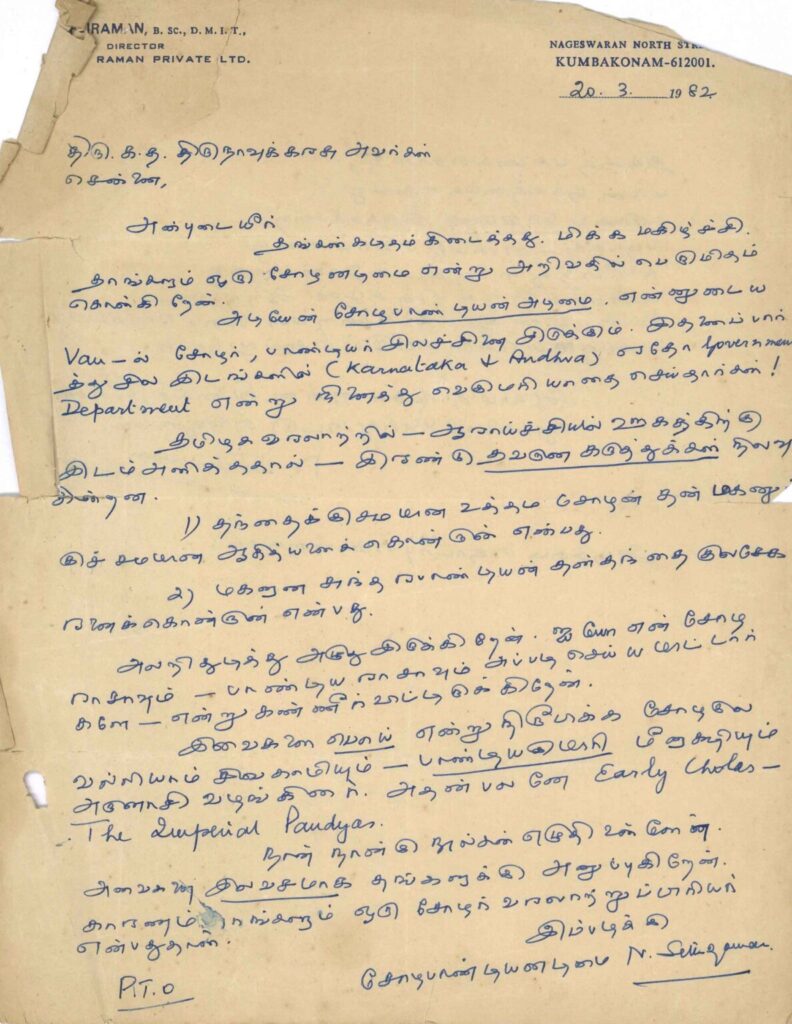 IRAMAN, B. SC., D. M. I. T.,
DIRECTOR
RAMAN PRIVATE LTD.
NAGESWARAN NORTH STR
KUMBAKONAM-612001.
20. 3. 1982
திரு. க. த. திருநாவுக்கரசு அவர்கள்
சென்னை,
அன்புடையீர்
தங்கள் கடிதம் கிடைத்தது. மிக்க மகிழ்ச்சி.
தாங்களும் ஒரு சோழனடிமை என்று அறிவதில் பெருமிதம்
கொள்கிறேன்.
அடியேன் சோழபாண்டியன் அடிமை. என்னுடைய
Van-ல் சோழர், பாண்டியர் சிலச்சினை இருக்கும். இதனைப்பார்
த்து சில இடங்களில் (Karnataka & Andhra) ஏதோ Governmen
Department என்று நினைத்து வெகுமரியாதை செய்தார்கள்!
தமிழக வரலாற்றில் - ஆராய்ச்சியில் ஊகத்திற்கு
இடம் அளித்ததால் - இரண்டு தவறான கருத்துக்கள் நிலவு
கின்றன.
1) தந்தைக்குச்சமமான உத்தம சோழன் தன் மகனு
குச் சமமான ஆதித்யனைக் கொன்றான் என்பது.
2) மகனான சுந்தரபாண்டியன் தன் தந்தை குலசேக
ரனைக் கொன்றான் என்பது.
அலறி துடித்து அழுது இருக்கிறேன். ஐயோ என் சோழ
ராசாவும் - பாண்டிய ராசாவும் அப்படி செய்ய மாட்டார்
களே - என்று கண்ணீர் விட்டிருக்கிறேன்.
இவைகளை பொய் என்று நிரூபிக்க சோழகுல
வல்லியாம் சிவகாமியும் - பாண்டியகுமாரி மீனாக்ஷியும்
அருளாசி வழங்கினர். அதன் பலனே Early Cholas -
The Imperial Pandyas.
நான் நான்கு நூல்கள் எழுதி உள்ளேன்.
அவைகளை இலவசமாக தங்களுக்கு அனுப்புகிறேன்.
காரணம் தாங்களும் ஒரு சோழர் வரலாற்றுப்பிரியர்
என்பதுதான்.
இப்படிக்கு
சோழபாண்டியனடிமை N. Sethuraman.
P.T.O